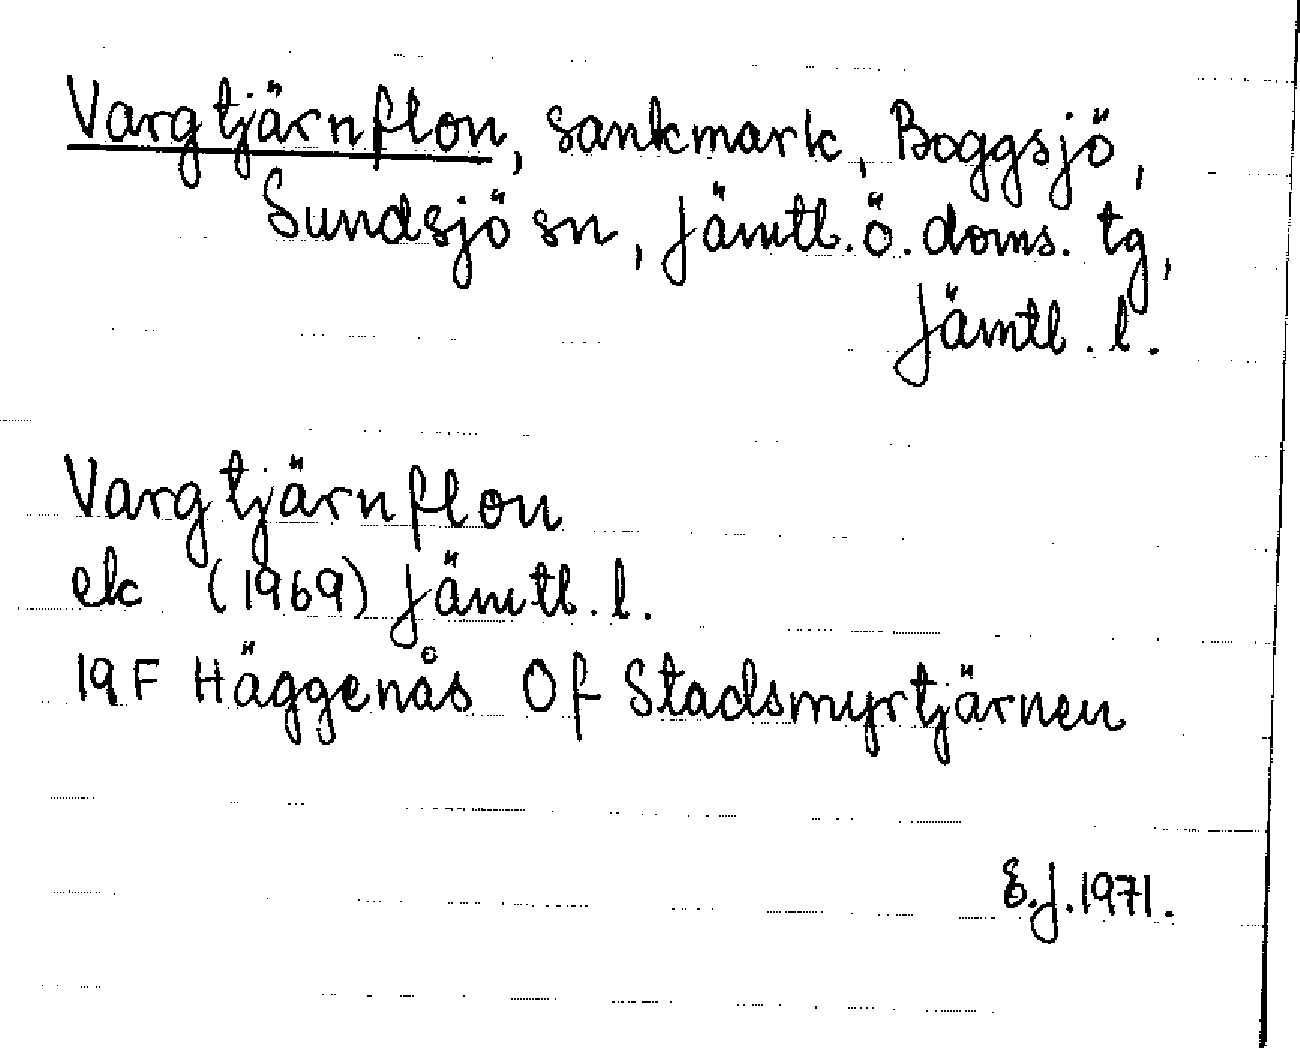 Vargtjärnflon, sankmark, Boggsjö,
Sundsjö sn, Jämtl. ö. doms. tg,
Jämtl. l.
Vargtjärnflon
ek (1969) Jämtl. l.
19F Häggenås Of Stadsmyrtjärnen
E.J. 1971.